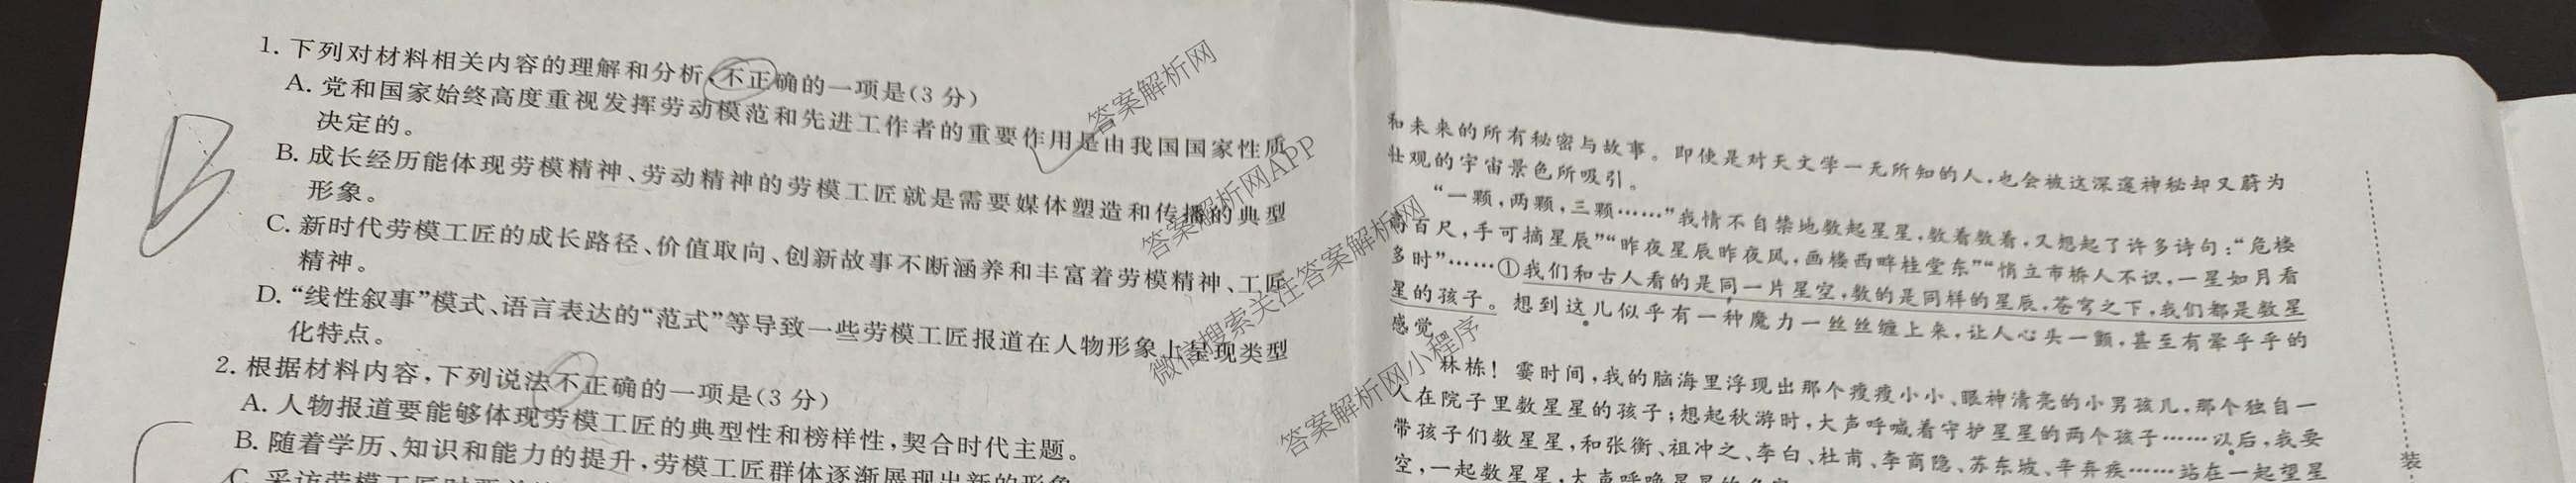 1. 下列对材料相关内容的理解和分析,不正确的一项是(3 分)
A. 党和国家始终高度重视发挥劳动模范和先进工作者的重要作用是由我国国家性质
决定的。
B. 成长经历能体现劳模精神、劳动精神的劳模工匠就是需要媒体塑造和传播的典型
形象。
C. 新时代劳模工匠的成长路径、价值取向、创新故事不断涵养和丰富着劳模精神、工匠
精神。
D. “线性叙事”模式、语言表达的“范式”等导致一些劳模工匠报道在人物形象上呈现类型
化特点。
2. 根据材料内容,下列说法不正确的一项是(3 分)
A. 人物报道要能够体现劳模工匠的典型性和榜样性,契合时代主题。
B. 随着学历、知识和能力的提升,劳模工匠群体逐渐展现出新的形象。
B
和未来的所有秘密与故事。即使是对天文学一无所知的人,也会被这深邃神秘却又蔚为
壮观的宇宙景色所吸引。
“一颗,两颗,三颗……”我情不自禁地数起星星,数着数着,又想起了许多诗句:“危楼
高百尺,手可摘星辰”“昨夜星辰昨夜风,画楼西畔桂堂东”“悄立市桥人不识,一星如月看
多时”……①我们和古人看的是同一片星空,数的是同样的星辰。苍穹之下,我们都是数星
星的孩子。想到这儿似乎有一种魔力一丝丝缠上来,让人心头一颤,甚至有晕乎乎的
感觉。
林栋!霎时间,我的脑海里浮现出那个瘦瘦小小、眼神清亮的小男孩儿,那个独自一
人在院子里数星星的孩子;想起秋游时,大声呼喊着守护星星的两个孩子……以后,我要
带孩子们数星星,和张衡、祖冲之、李白、杜甫、李商隐、苏东坡、辛弃疾……站在一起望星
空,一起数星星,大声呼唤星星的名字
装
答案解析网
答案解析网APP
微信搜索关注答案解析网
答案解析网小程序